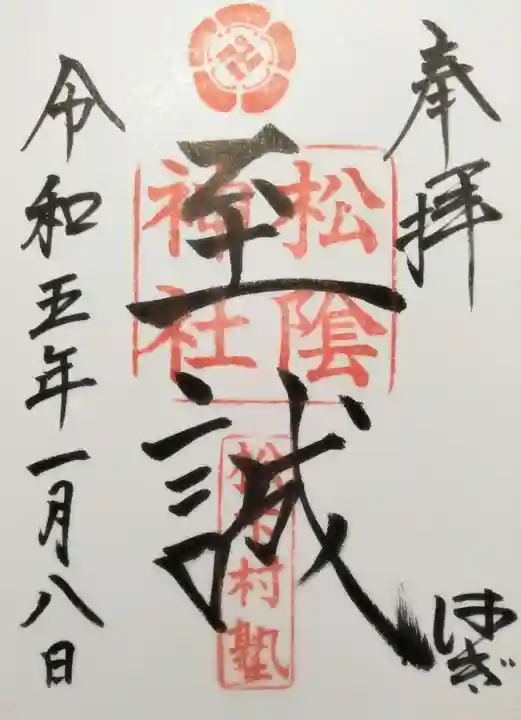 奉拝
はぎ
至誠
松陰
神社
松下村塾
令和五年一月八日